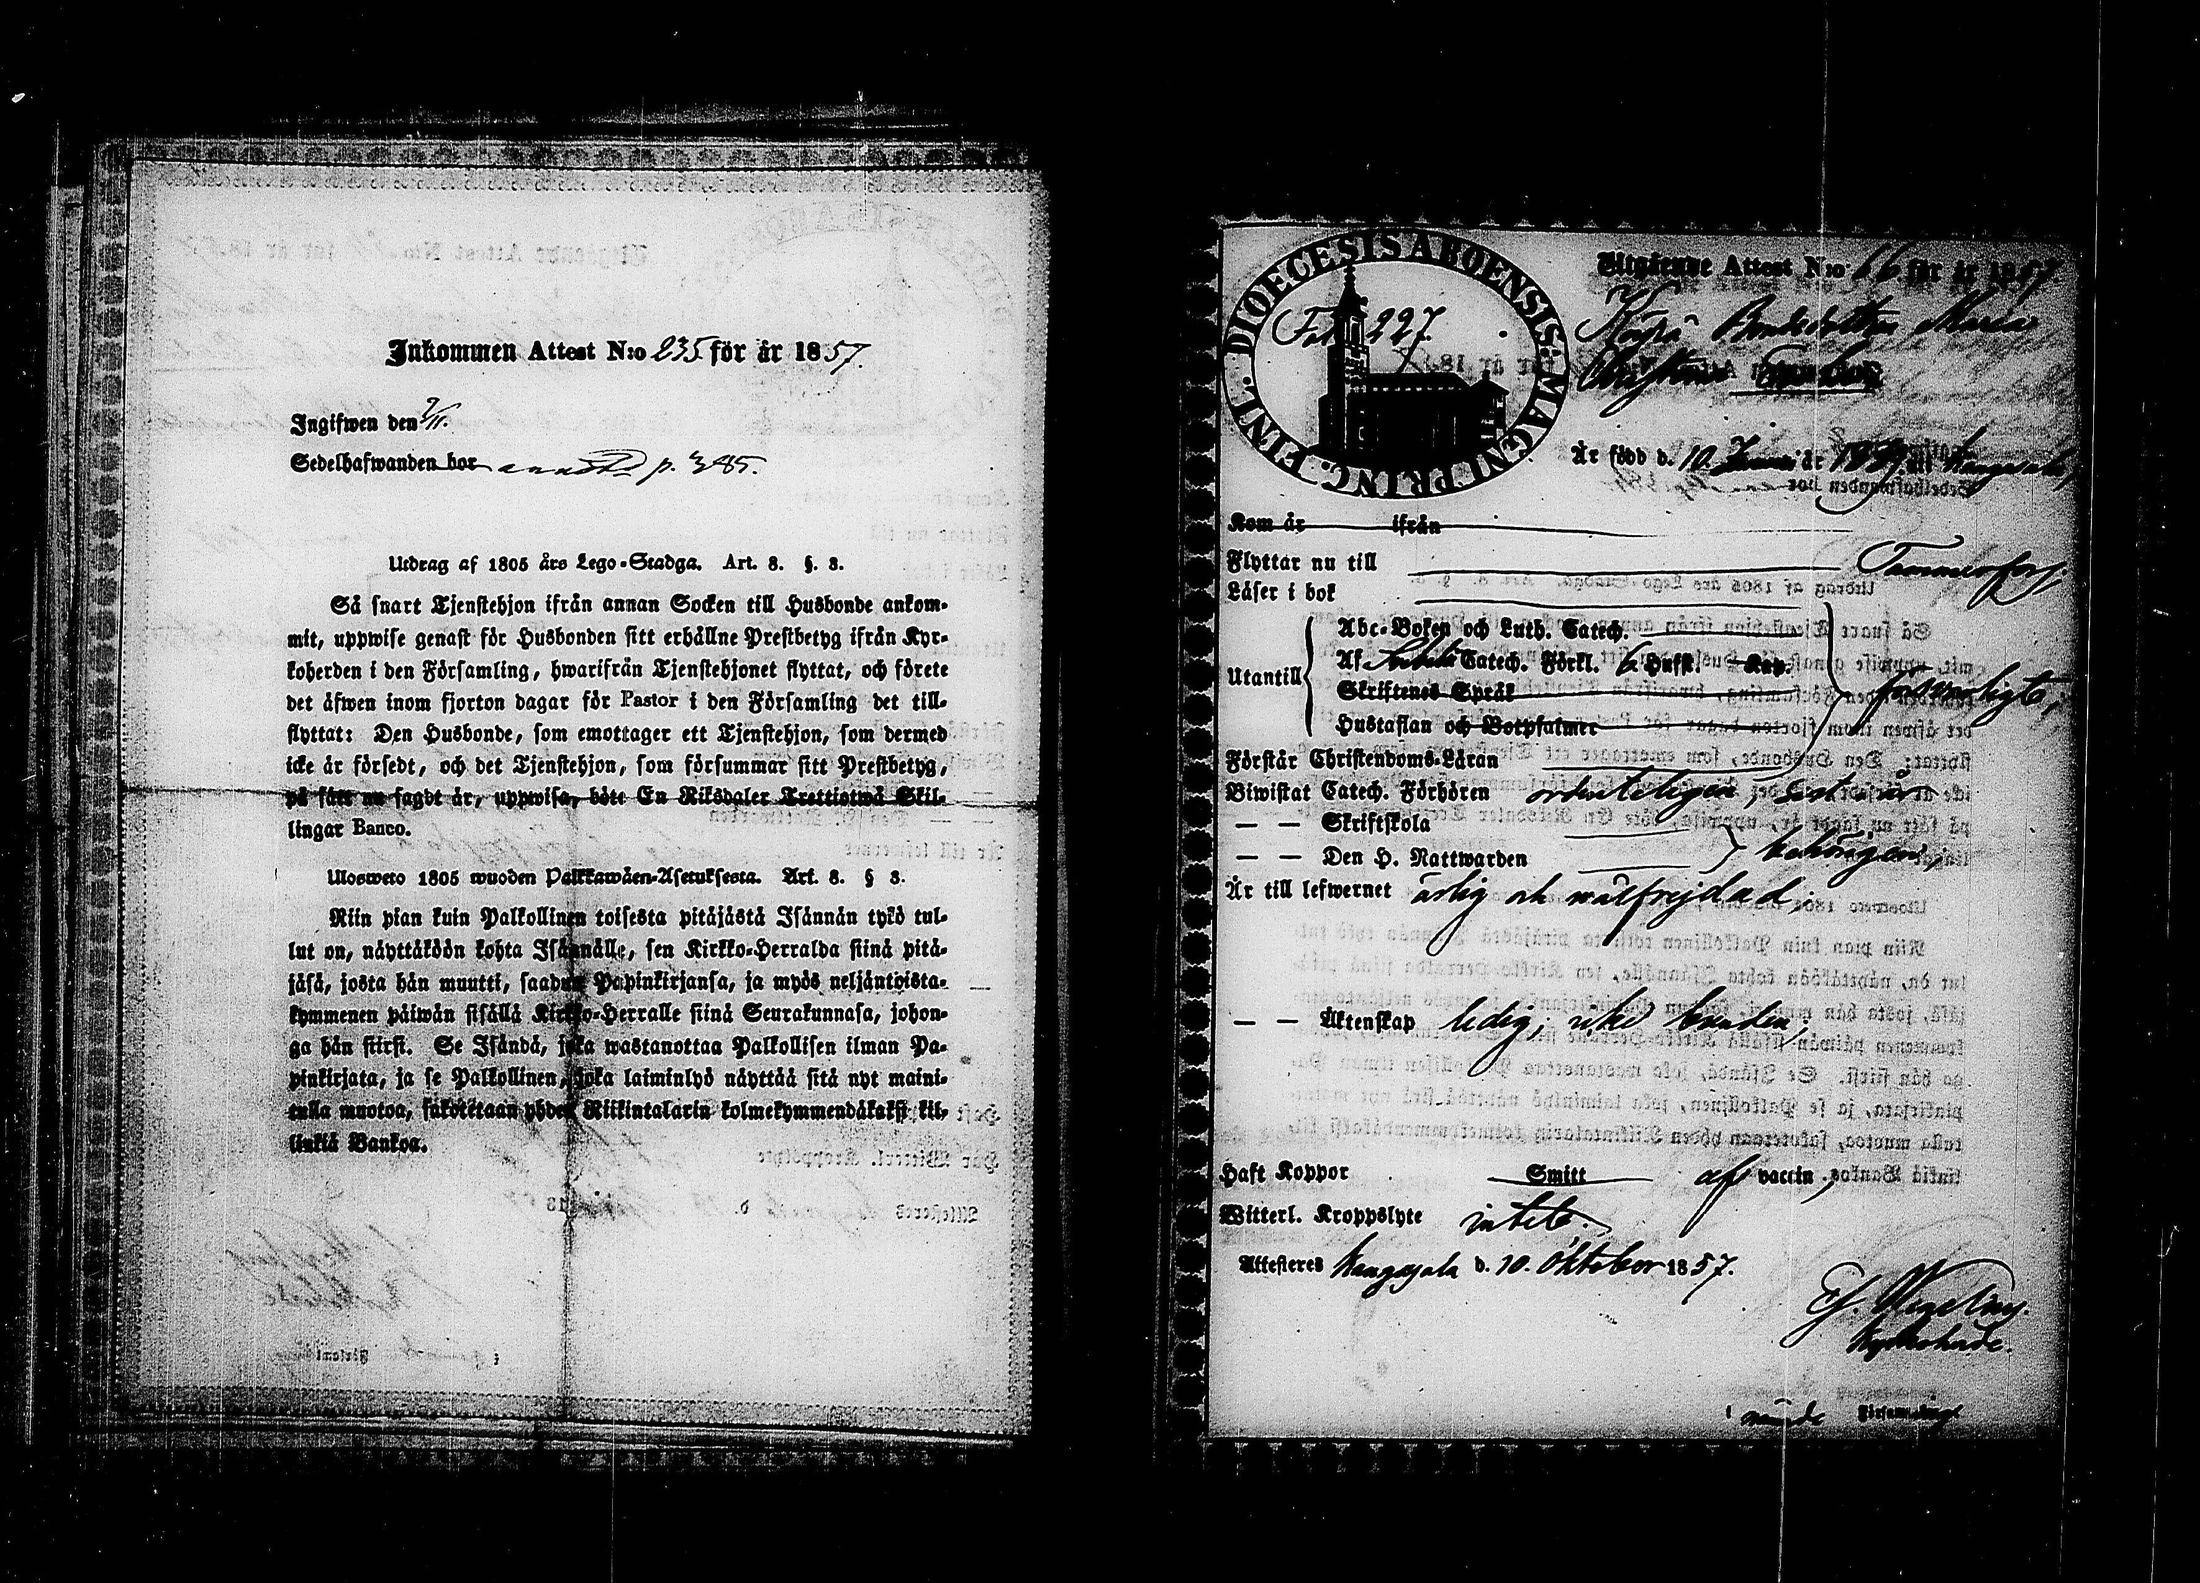 Inkommen Attest N:o 235 för år 1857.
Ingifwen den 2/11.
Sedelhafwanden bor annst p. 385.
Utdrag af 1805 års Lego-Stadga. Art. 8. §. 3.
Så snart Tjenstehjon ifrån annan Socken till Husbonde ankom-
mit, uppwise genast för Husbonden sitt erhållne Prestbetyg ifrån Kyr-
koherden i den Församling, hwarifrån Tjenstehjonet flyttat, och förete
det äfwen inom fjorton dagar för Pastor i den Församling det till-
flyttat: Den Husbonde, som emottager ett Tjenstehjon, som dermed
icke är försedt, och det Tjenstehjon, som försummar sitt Prestbetyg,
på sätt nu sagdt är, uppwisa, böte En Riksdaler Trettiotwå Skil-
lingar Banco.
Ulosweto 1805 wuoden Palkkawäen-Asetuksesta. Art. 8. § 3.
Niin pian kuin Palkollinen toisesta pitäjästä Isännän tykö tul-
lut on, näyttäköön kohta Isännälle, sen Kirkko-Herralda siinä pitä-
jäsä, josta hän muutti, saadun Papinkirjansa, ja myös neljäntoista-
kymmenen päiwän sisällä Kirkko-Herralle siinä Seurakunnasa, johon-
ga hän siirsi. Se Isändä, joka wastanottaa Palkollisen ilman Pa-
pinkirjata, ja se Palkollinen, joka laiminlyö näyttää sitä nyt maini-
tulla muotoa, sakotetaan yhden Riikintalarin kolmekymmendäkaksi kil-
linkiä Bankoa.
DIOECESIS ABOENSIS MAGNI PRINC. FINL.
Fol. 227.
Utgående Attest N:o 66 för år 1857.
Bondedottren Maria
Christina
Är född d. 10. Juni år 1839 i Kangasala,
Kom år ifrån
Flyttar nu till Tammerfors,
Läser i bok
Utantill
Abc-Boken och Luth. Catech.
Af Catech. Förkl. 6 Hufst. Kap.
Skriftenes Språk
försvarligt,
Hustaflan och Botpsalmer
Förstår Christendoms-Läran
Biwistat Catech. Förhören ordenteligen, sist i år
— — Skriftskola
— — Den H. Nattwarden behörigen,
Är till lefwernet ärlig och wälfrejdad,
— — Äktenskap ledig, icke bunden,
Haft Koppor Smitt af vaccin,
Witterl. Kroppslyte intet.
Attesteras Kangasala d. 10. Oktober 1857.
Kyrkoherde.
i nämnde Församling